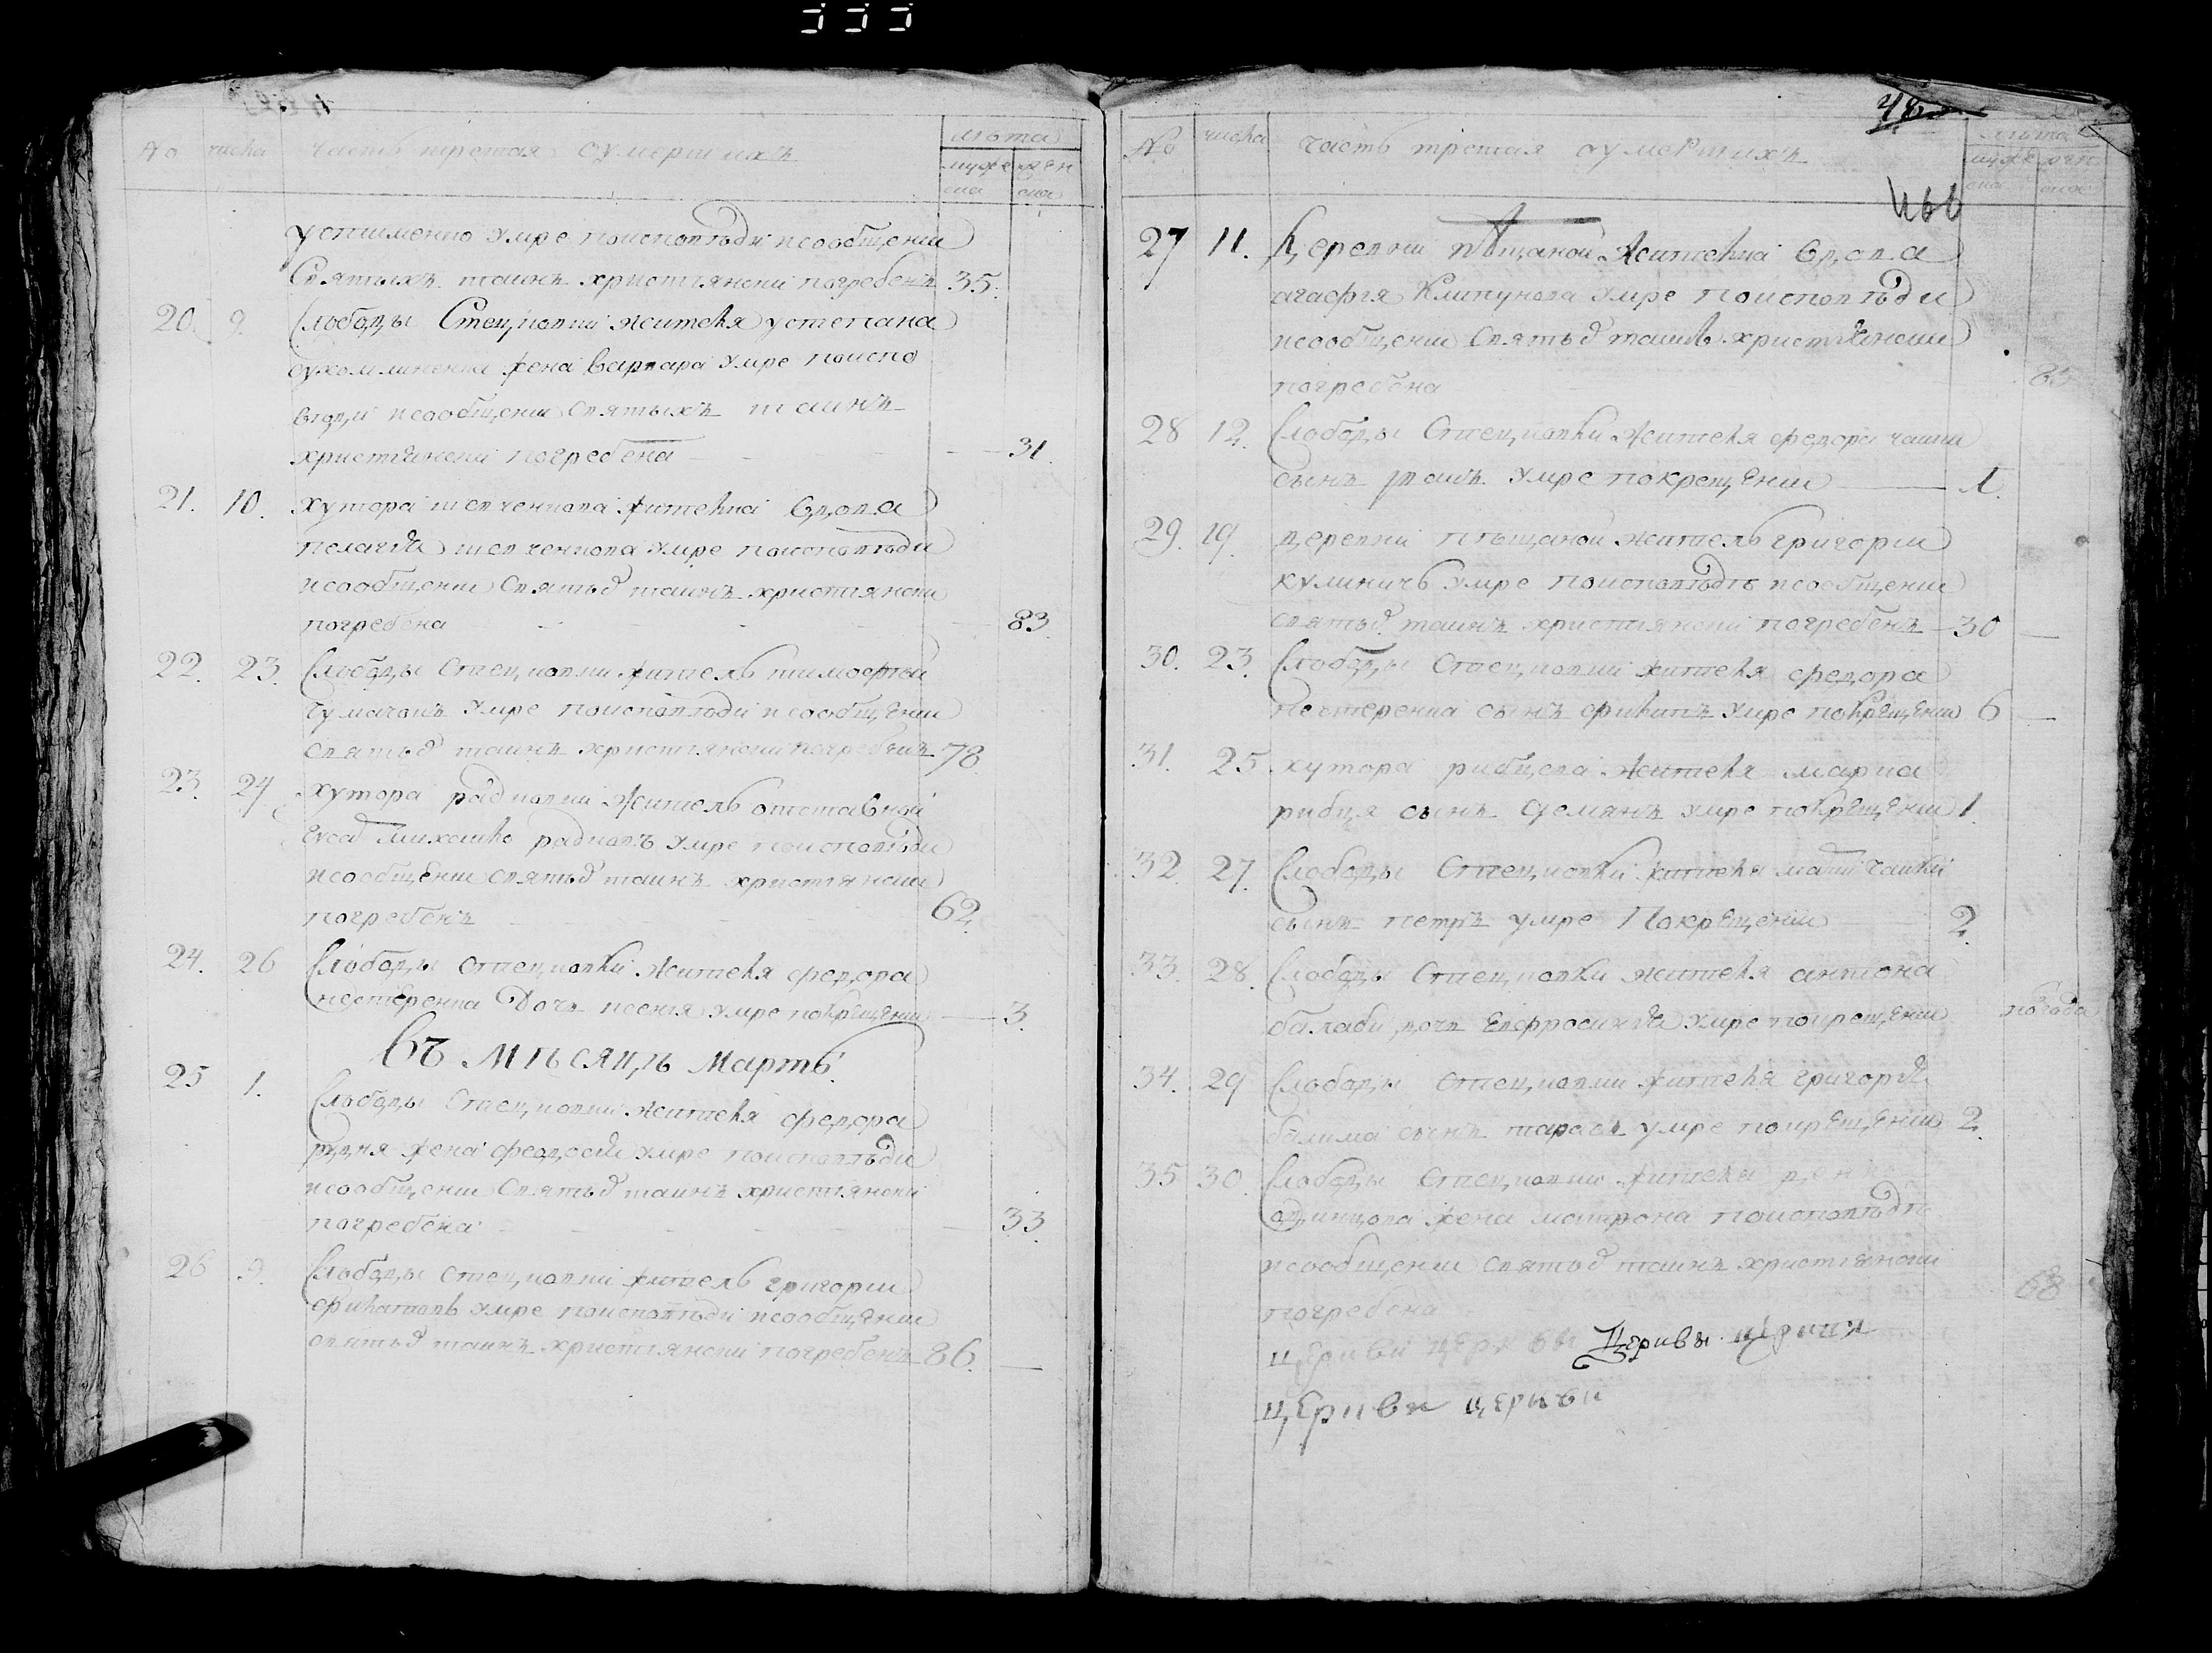 № числа часть третая оумершихъ лѣта
муже ска жен ска
умре поисповѣди исообщении
Святыхъ таинъ христіянски погребенъ 35.
20. 9. Слободы Стецковки жителя устепана
сухомлиненка жена варвара умре поиспо
вѣди исообщении Святыхъ таинъ
христіянски погребена 31.
21. 10. хутора шевченкова жителка вдова
пелагія шевченкова умре поисповѣди
исообщении Святых таинъ христіянски
погребена 83.
22. 23. Слободы Стецковки житель тимофей
чумаченъ умре поисповѣди исообщении
святых таинъ христіянски погребенъ 78.
23. 24 хутора радковки житель отставной
радковъ умре поисповѣди
исообщении святых таинъ христіянски
погребенъ 62.
24. 26 Слободы стецковки жителя федора
нестеренка дочь ксенія умре покрещении 3.
Въ мѣсяцѣ Мартѣ.
25 1. Слободы Стецковки жителя федора
жена феодосія умре поисповѣди
исообщении Святых таинъ христіянски
погребена 33.
26 9. Слободы стецковки житель григории
филатовъ умре поисповѣди исообщении
святых таинъ христіянски погребенъ 86.
№ числа часть третая оумершихъ лѣта
муже ска жен ска
466
27 11. Деревни пѣщаной жителка вдова
агафія Клипунова умре поисповѣди
исообщении Святых таинъ христіянски
погребена 85
28 12. Слободы Стецковки жителя федора чашки
сынъ умре покрещении 1.
29. 19. деревни пѣщаной житель григории
кулиничь умре поисповѣдѣ исообщении
святых таинъ христіянски погребенъ 30
30. 23. Слободы Стецковки жителя федора
нестеренка сынъ филипъ умре покрещении 6
31. 25 хутора рибцова жителя марка
рибця сынъ демянъ умре покрещении 1.
32. 27. Слободы Стецковки жителя чашки
сынъ петръ умре Покрещении 2.
33. 28. Слободы Стецковки жителя антона
балаби дочь евфросинія умре покрещении полгода
34. 29 Слободы стецковки жителя григорія
балима сынъ тарасъ умре покрещении 2.
35 30. Слободы стецковки жителя
одинцова жена матрона поисповѣдѣ
исообщении святых таинъ христіянски
погребена 68
церкви церкви Церквы церкви
церкви церкви